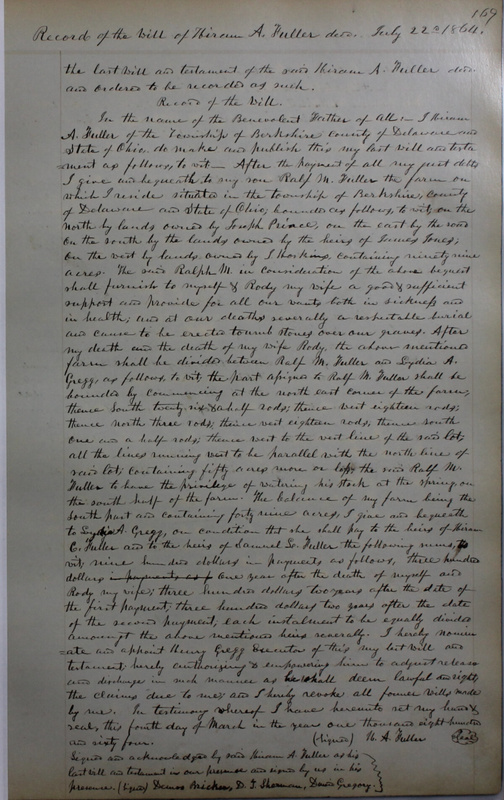 169
Record of the Will of Hiram A. Fuller decd. July 22nd 1864.
the last Will and testament of the said Hiram A. Fuller decd
and ordered to be recorded as such.
Record of the Will.
In the name of the Benevolent Father of All:- I Hiram
A. Fuller of the Township of Berkshire County of Delaware and
State of Ohio, do make and publish this my last will and testa
=ment as follows, to wit- After the payment of all my just debts
I give and bequeath to my son Ralf M. Fuller the farm on
which I reside situated in the township of Berkshire, County
of Delaware and State of Ohio, bounded as follows, to wit, on the
North by lands owned by Joseph Prince, on the east by the road
On the South by the lands owned by the heirs of James Jones;
On the west by lands owned by Hoskins, containing ninety nine
acres. The said Ralph M. in consideration of the above bequest
shall furnish to myself & Rody my wife a good & sufficient
support and provide for all our wants both in sickness and
in health, and at our deaths severally a respectable burial
and cause to be erected tomb stones over our graves. After
my death and the death of my wife Rody, the above mentioned
farm shall be divided between Ralf M. Fuller and Lydia A.
Gregg, as follows, to wit, the part assigned to Ralf M. Fuller shall be
bounded by commencing at the north east corner of the farm,
thence South twenty six & a half rods; thence west eighteen rods;
thence north three rods; thence west eighteen rods, thence south
One and a half rods; thence west to the west line of the said lot;
all the lines running west to be parallel with the north line of
said lot, containing fifty acres more or less, the said Ralf M.
Fuller to have the privilege of watering his stock at the spring on
the south half of the farm. The balance of my farm being the
South part and containing forty nine acres, I give and bequeath
to Lydia A. Gregg, on condition that she shall pay to the heirs of Hiram
C. Fuller and to the heirs of Samuel S. Fuller the following sums, to
wit, nine hundred dollars in payments as follows, three hundred
dollars in payments as f One year after the death of myself and
Rody my wife; three hundred dollars two years after the date of
the first payment; three hundred dollars two years after the date
of the second payment, each instalment to be equally divided
amongst the above mentioned heirs severally. I hereby nomin
=ate and appoint Henry Gregg Executor of this my last will and
testament hereby authorizing & empowering him to adjust release
and discharge in such manner as he shall deem lawful and right
the claims due to me, and I hereby revoke all former Wills made
by me. In testimony whereof I have hereunto set my hand &
seal, this fourth day of March in the year one thousand eight hundred
and sixty four. (Signed) H. A. Fuller (Seal)
Signed and acknowledged by said Hiram A. Fuller as his
last will and testament in our presence and signed by us in his
presence. (Signed) D. T. Sherman, David Gregory.